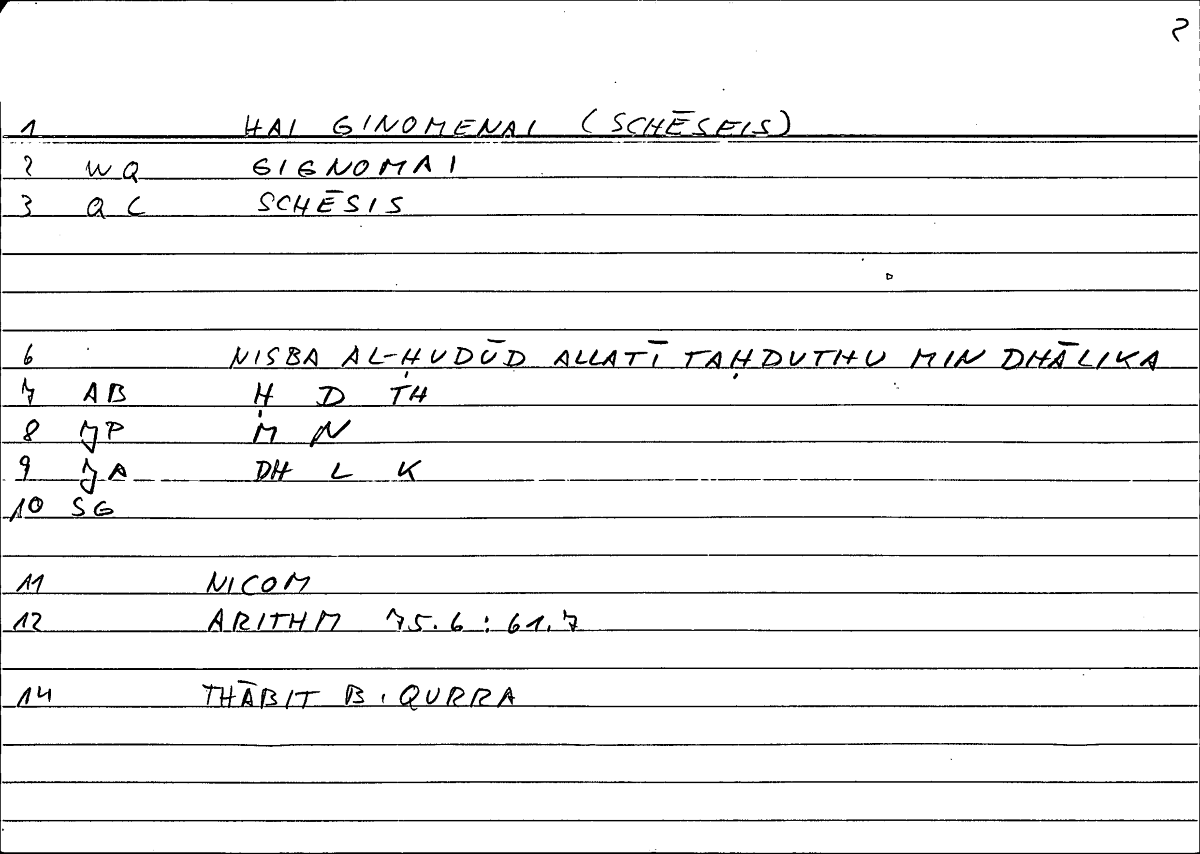 2
1 HAI GINOMENAI (SCHĒSEIS)
2 WQ GIGNOMAI
3 QC SCHĒSIS
6 NISBA AL-ḤUDŪD ALLATĪ TAḤDUTHU MIN DHĀLIKA
7 AB Ḥ D TH
8 JP M N
9 JA DH L K
10 SG
11 NICOM
12 ARITHM 75.6 : 61.7
14 THĀBIT B. QURRA